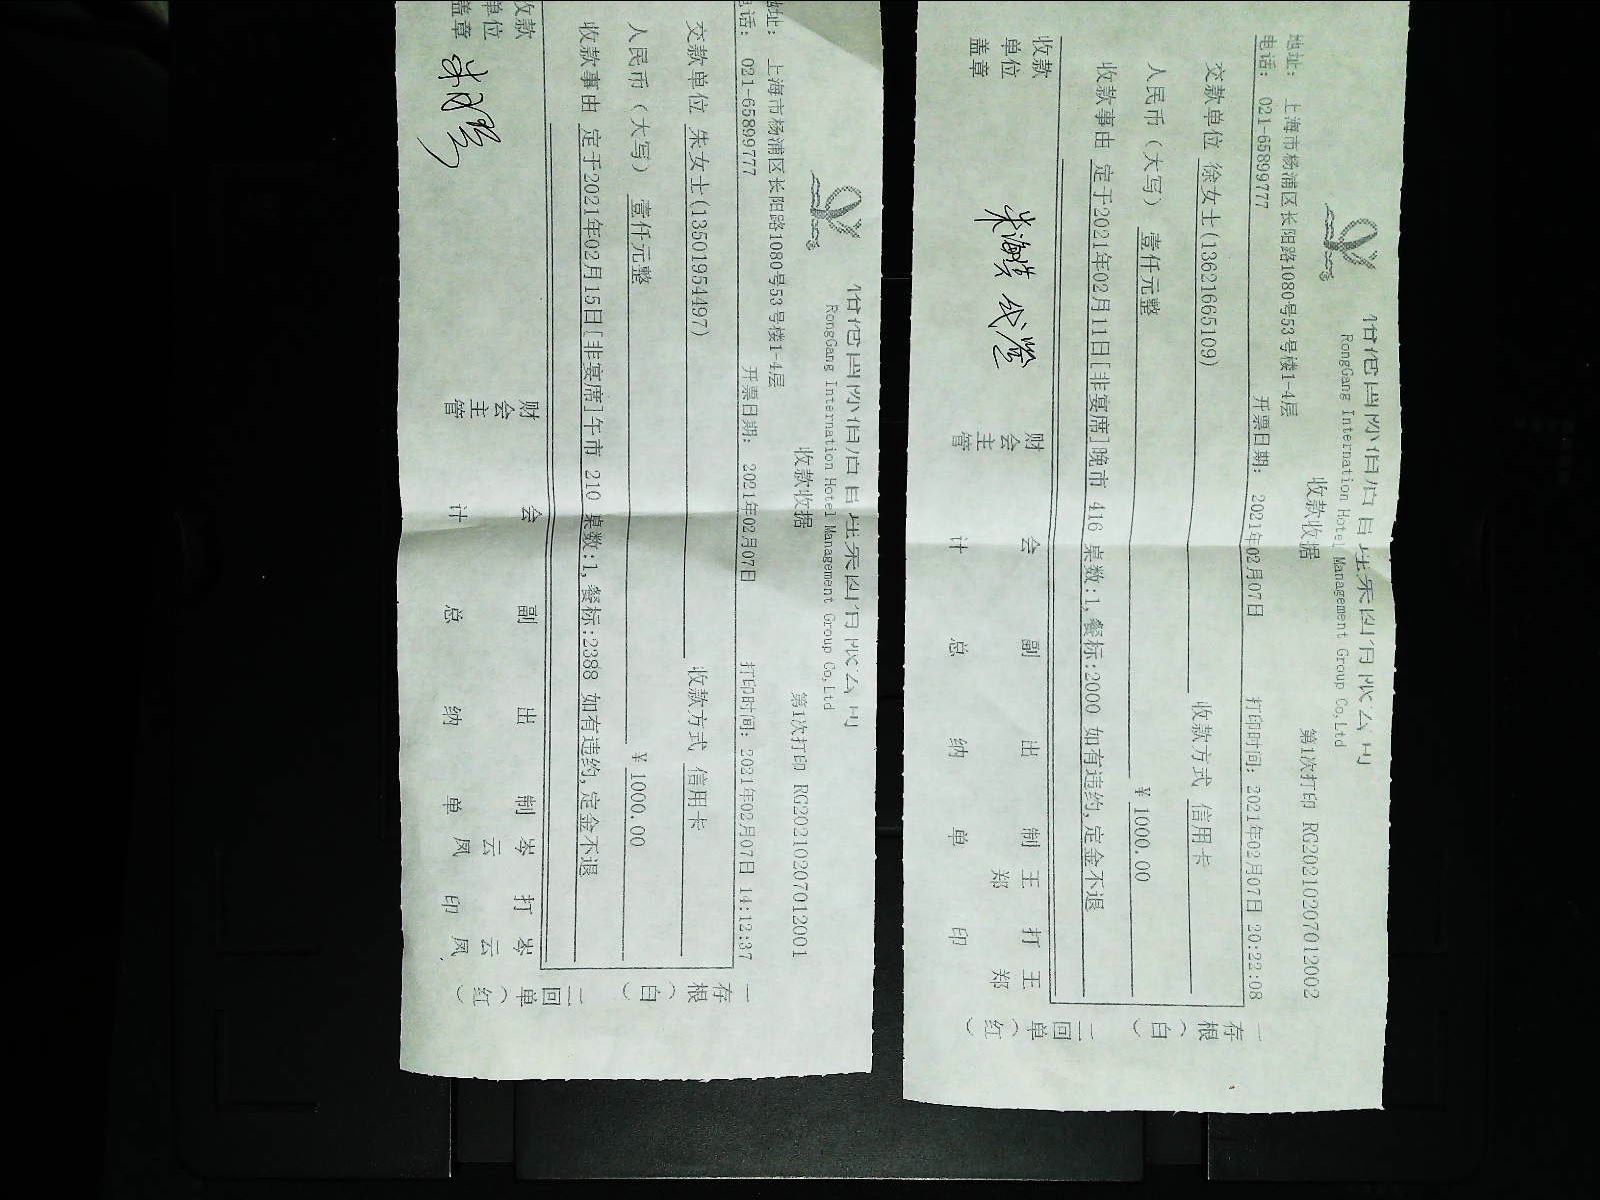 RongGang Internation Hotel Management Group Co,Ltd
收款收据
第1次打印 RG20210207012001
地址: 上海市杨浦区长阳路1080号53号楼1-4层
电话: 021-65899777 开票日期: 2021年02月07日 打印时间: 2021年02月07日 14:12:37
交款单位 朱女士(13501954497) 收款方式 信用卡
人民币(大写) 壹仟元整 ¥ 1000.00
收款事由 定于2021年02月15日[非宴席]午市 210 桌数:1,餐标:2388 如有违约,定金不退
收款单位盖章 财会主管 会计 副总 出纳 制单 岑云凤 打印 岑云凤
一存根(白) 二回单(红)
RongGang Internation Hotel Management Group Co,Ltd
收款收据
第1次打印 RG20210207012002
地址: 上海市杨浦区长阳路1080号53号楼1-4层
电话: 021-65899777 开票日期: 2021年02月07日 打印时间: 2021年02月07日 20:22:08
交款单位 徐女士(13621665109) 收款方式 信用卡
人民币(大写) 壹仟元整 ¥ 1000.00
收款事由 定于2021年02月11日[非宴席]晚市 416 桌数:1,餐标:2000 如有违约,定金不退
收款单位盖章 财会主管 会计 副总 出纳 制单 王郑 打印 王郑
一存根(白) 二回单(红)